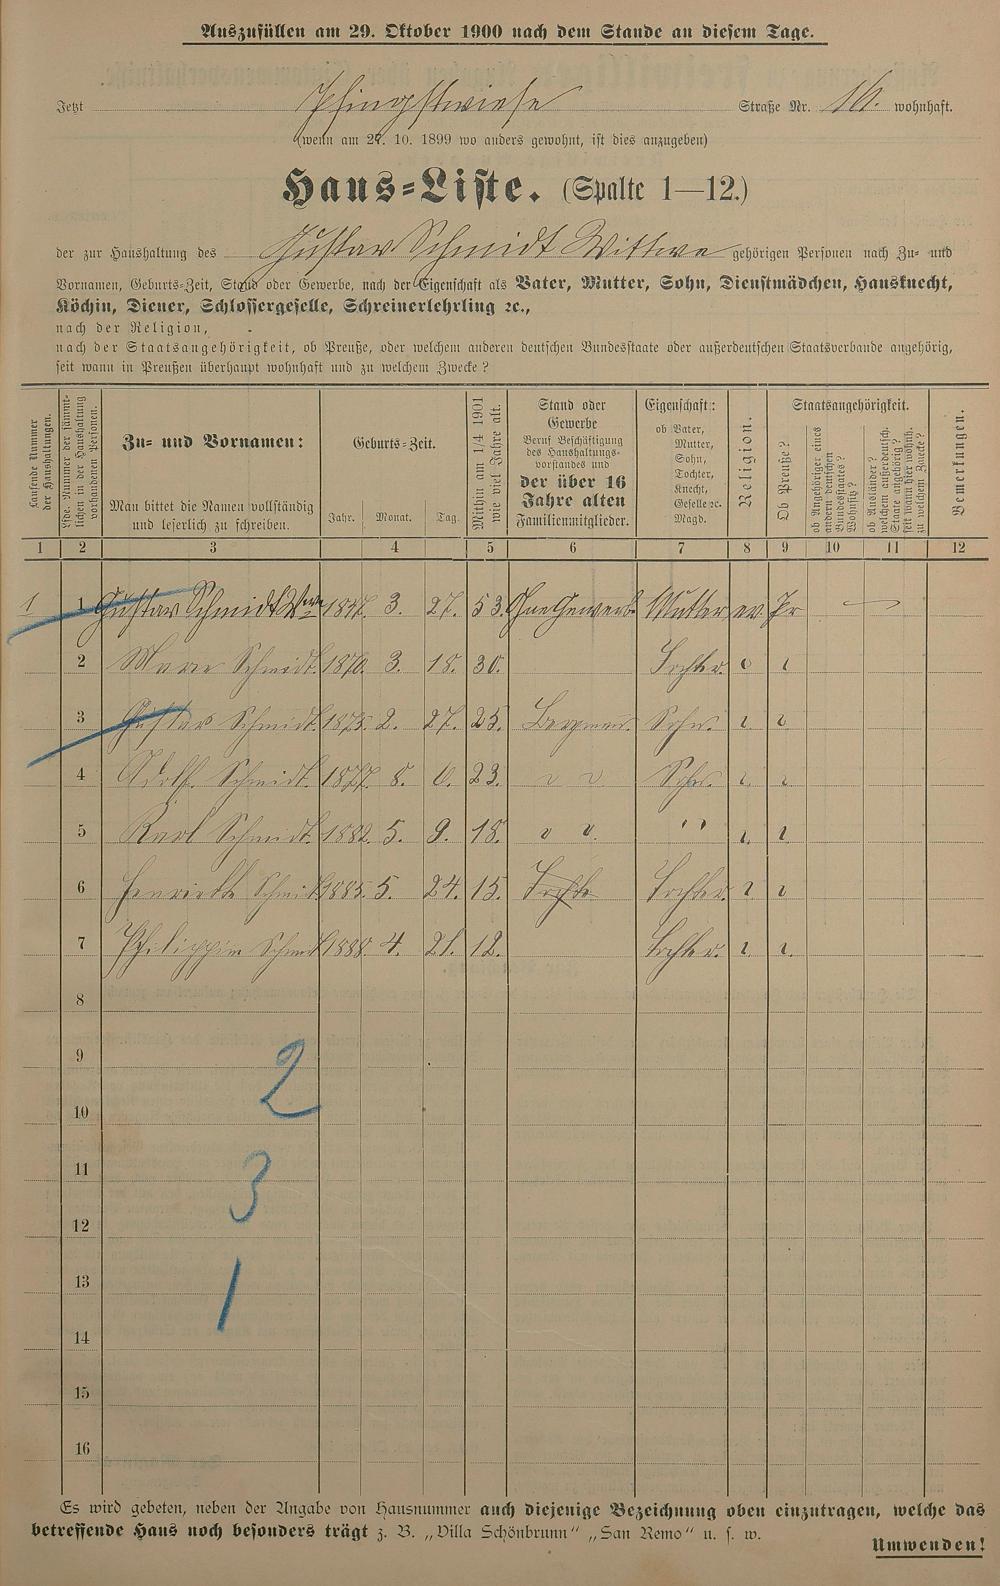 Auszufüllen am 29. Oktober 1900 nach dem Stande an diesem Tage.
Jetzt Pfingstwiese Straße Nr. 16. wohnhaft.
(wenn am 27. 10. 1899 wo anders gewohnt, ist dies anzugeben)
Haus-Liste. (Spalte 1—12.)
der zur Haushaltung des Gustav Schmidt Wittwe gehörigen Personen nach Zu- und
Vornamen, Geburts-Zeit, Stand oder Gewerbe, nach der Eigenschaft als Vater, Mutter, Sohn, Dienstmädchen, Hausknecht,
Köchin, Diener, Schlossergeselle, Schreinerlehrling ꝛc.,
nach der Religion,
nach der Staatsangehörigkeit, ob Preuße, oder welchem anderen deutschen Bundesstaate oder außerdeutschen Staatsverbande angehörig,
seit wann in Preußen überhaupt wohnhaft und zu welchem Zwecke?
Laufende Nummer der Haushaltungen.
Lfde. Nummer der sämmtlichen in der Haushaltung vorhandenen Personen.
Zu- und Vornamen:
Man bittet die Namen vollständig
und leserlich zu schreiben.
Geburts-Zeit.
Jahr. Monat. Tag.
Mithin am 1/4 1901 wie viel Jahre alt.
Stand oder
Gewerbe
Beruf, Beschäftigung
des Haushaltungs-
vorstandes und
der über 16
Jahre alten
Familienmitglieder.
Eigenschaft:
ob Vater,
Mutter,
Sohn,
Tochter,
Knecht,
Geselle ꝛc.
Magd.
Religion.
Staatsangehörigkeit.
Ob Preuße?
ob Angehöriger eines
andern deutschen
Bundesstaates?
Wohnsitz?
ob Ausländer?
welchem außerdeutsch.
Staate angehörig?
seit wann hier wohnh.
zu welchem Zwecke?
Bemerkungen.
1 2 3 4 5 6 7 8 9 10 11 12
1 1 Gustav Schmidt Wwe 1847. 3. 27. 53. Ohne Gewerbe Mutter ev. Pr —
2 Marie Schmidt. 1870. 3. 18. 30. Tochter. " "
3 Gustav Schmidt. 1875. 2. 27. 25. Bergmann. Sohn. " "
4 Adolf Schmidt. 1877. 8. 6. 23. " " Sohn. " "
5 Karl Schmidt. 1882. 5. 9. 18. " " " " " "
6 Henriette Schmidt 1885. 5. 24. 15. Tochter. " "
7 Philippine Schmidt 1888. 4. 21. 12. Tochter. " "
8
9
2
10
11
3
12
13
1
14
15
16
Es wird gebeten, neben der Angabe von Hausnummer auch diejenige Bezeichnung oben einzutragen, welche das
betreffende Haus noch besonders trägt z. B. „Villa Schönbrunn“ „San Remo“ u. s. w.
Umwenden!